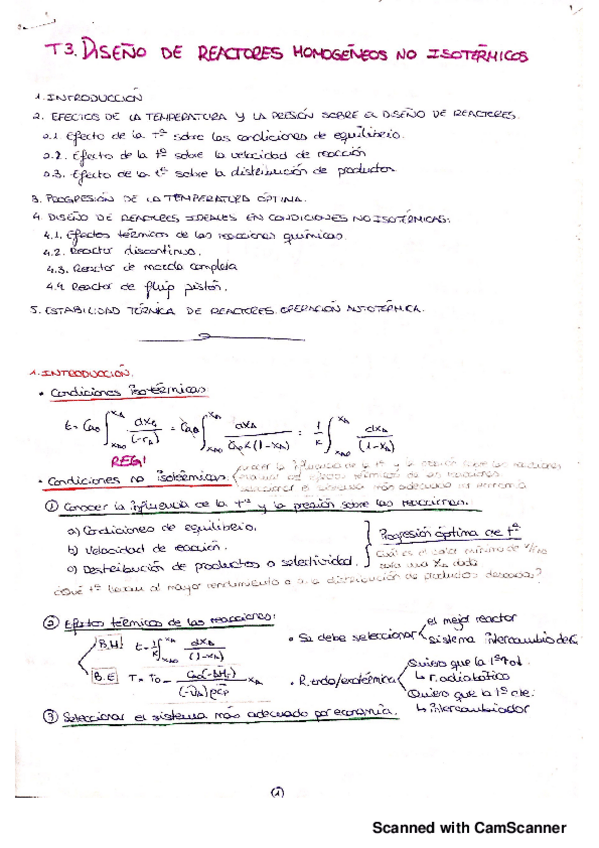 T3. DISEÑO DE REACTORES HOMOGÉNEOS NO ISOTÉRMICOS
1. INTRODUCCIÓN
2. EFECTOS DE LA TEMPERATURA Y LA PRESIÓN SOBRE EL DISEÑO DE REACTORES.
2.1 Efecto de la Tª sobre las condiciones de equilibrio.
2.2. Efecto de la tª sobre la velocidad de reacción
2.3. Efecto de la tª sobre la distribución de productos
3. PROGRESIÓN DE LA TEMPERATURA ÓPTIMA.
4. DISEÑO DE REACTORES IDEALES EN CONDICIONES NO ISOTÉRMICAS:
4.1. Efectos térmicos de las reacciones químicas.
4.2. Reactor discontinuo.
4.3. Reactor de mezcla completa
4.4 Reactor de flujo pistón.
5. ESTABILIDAD TÉRMICA DE REACTORES. OPERACIÓN AUTOTÉRMICA.
1. INTRODUCCIÓN.
• Condiciones isotérmicas
t = CA0 ∫ XA0 XA dXA/(-rA) = CA0 ∫ XA0 XA dXA/(CA0 K (1-XA)) = 1/K ∫ XA0 XA dXA/(1-XA)
• Condiciones no isotérmicas
① Conocer la influencia de la Tª y la presión sobre las reacciones.
a) Condiciones de equilibrio.
b) Velocidad de reacción.
c) Distribución de productos o selectividad.
Progresión óptima de tª
¿Qué tª llevan al mayor rendimiento o a la distribución de productos deseada?
② Efectos térmicos de las reacciones:
B.M t = 1/K ∫ XA0 XA dXA/(1-XA)
• Se debe seleccionar
el mejor reactor
sistema intercambio de
B.E T = T0 - CA0(-ΔHr)/((-νA) ρ CP) XA
• R. endo/exotérmica
Quiero que la tª
↳ r. adiabático
Quiero que la tª cte.
↳ intercambiador
③ Seleccionar el sistema más adecuado por economía.
(1)
Scanned with CamScanner